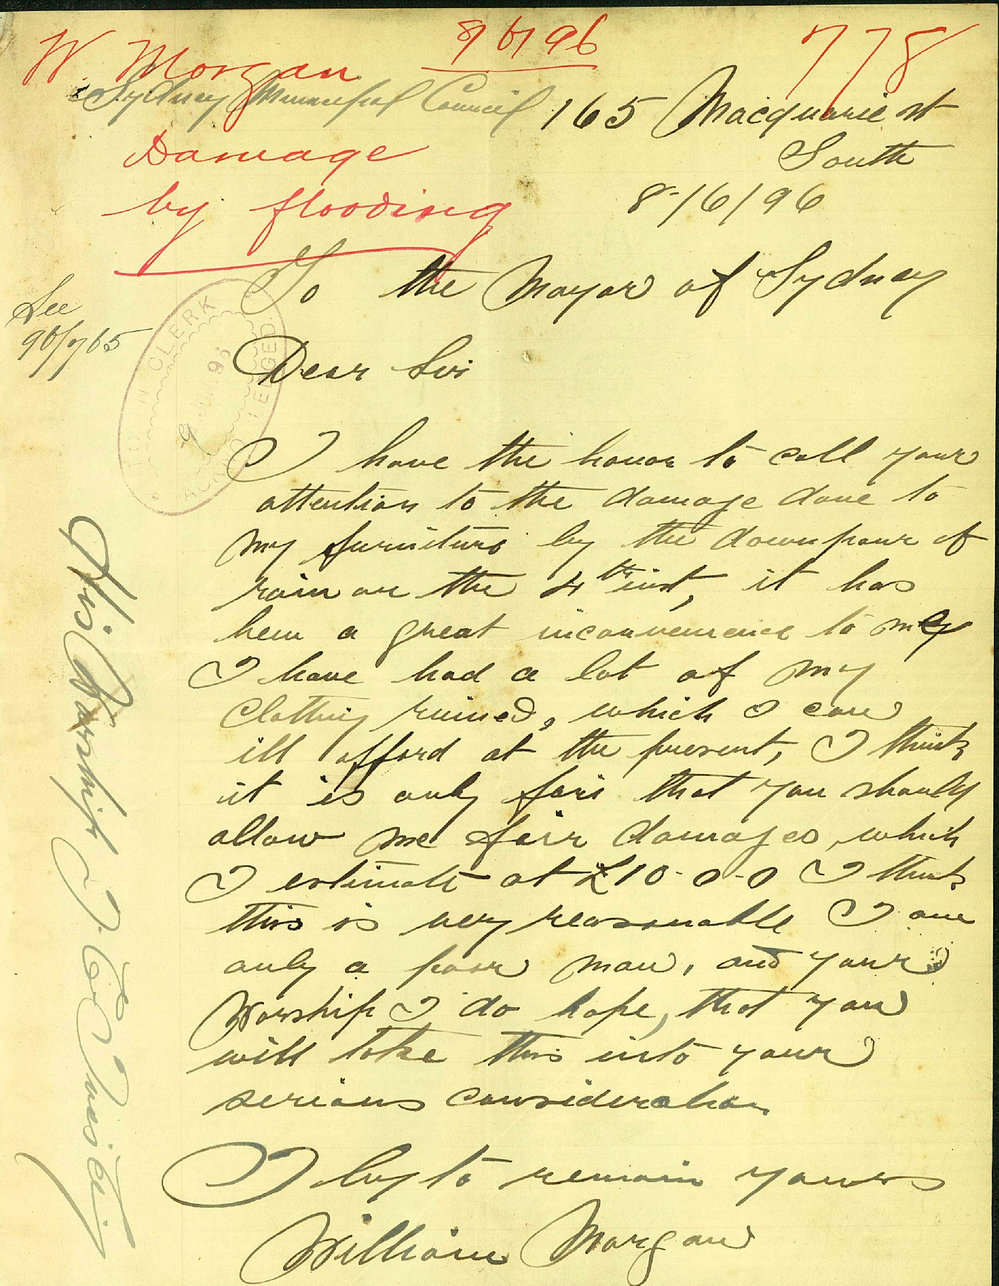 W Morgan
9/6/96
778
Sydney Municipal Council
165 Macquarie St
South
Damage
by flooding
8/6/96
To the Mayor of Sydney
See
96/765
TOWN CLERK
ACKNOWLEDGED
Dear Sir
I have the honor to call your
attention to the damage done to
my furniture by the downpour of
rain on the 4th inst, it has
been a great inconvenience to me
I have had a lot of my
Clothing ruined, which I can
ill afford at the present, I think
it is only fair that you should
allow me fair damages which
I estimate at £10-0-0 I think
this is very reasonable I am
only a poor man, and your
Worship I do hope, that you
will take this into your
serious consideration
I beg to remain yours
William Morgan
His Worship